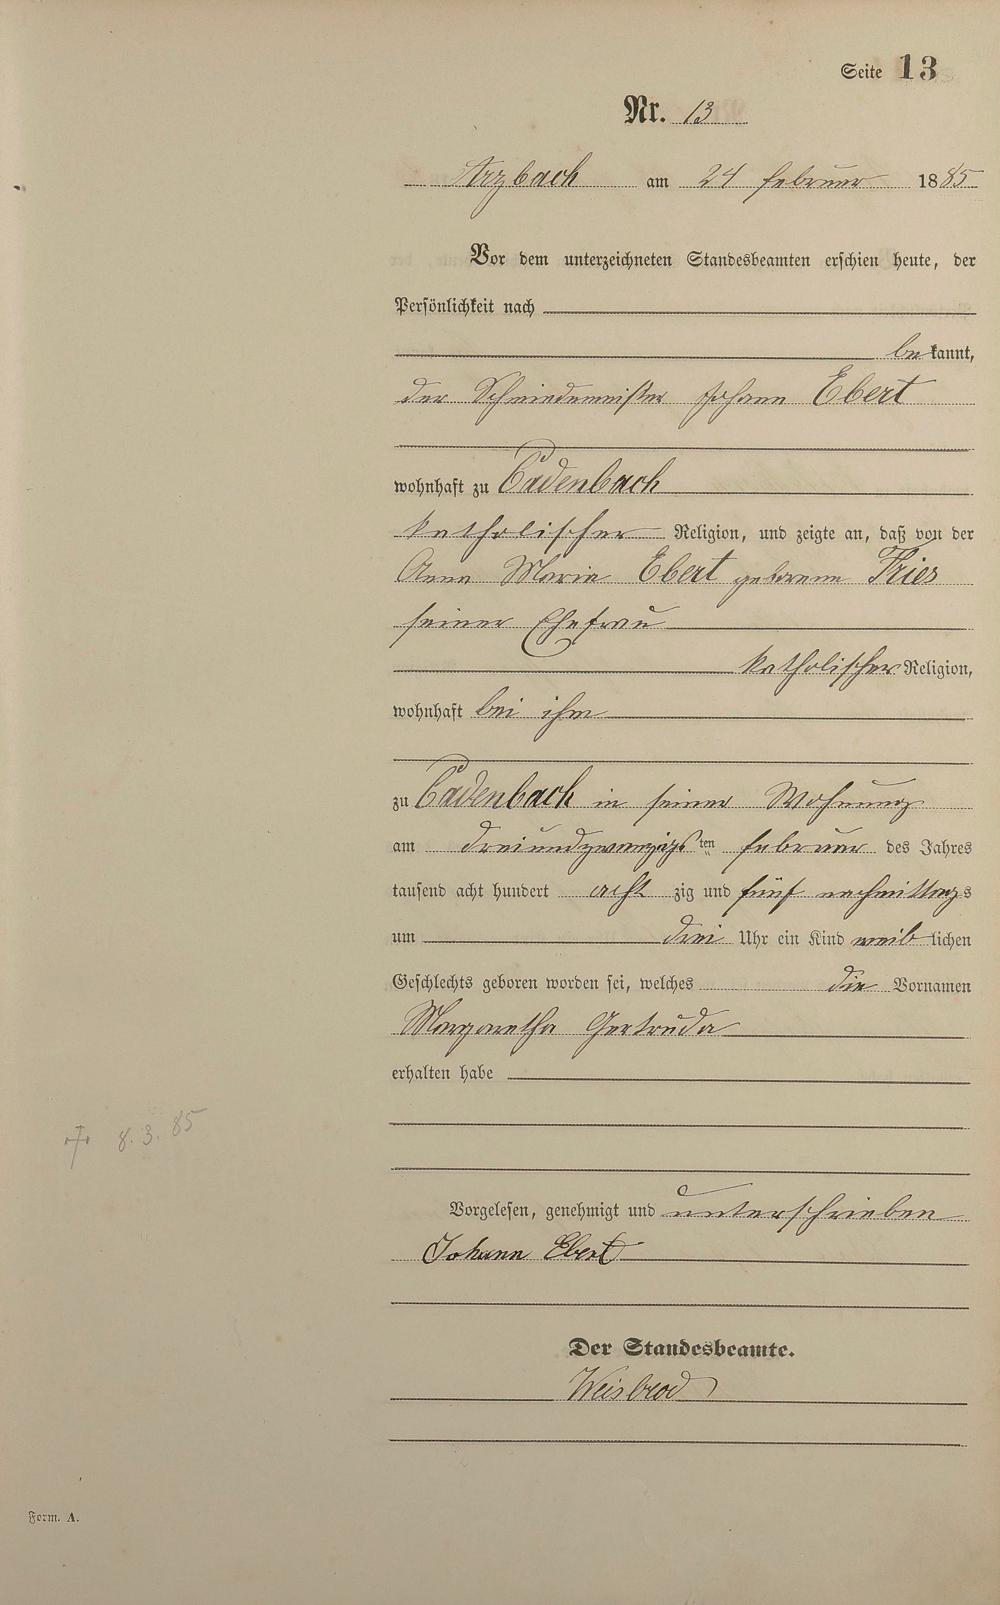 Seite 13
Nr. 13
Arzbach am 24 Februar 1885
Vor dem unterzeichneten Standesbeamten erschien heute, der
Persönlichkeit nach
bekannt,
der Schmiedemeister Johann Ebert
wohnhaft zu Cadenbach
katholischer Religion, und zeigte an, daß von der
Anna Maria Ebert geborene Fries
seiner Ehefrau
katholischer Religion,
wohnhaft bei ihm
zu Cadenbach in seiner Wohnung
am dreiundzwanzigsten Februar des Jahres
tausend acht hundert acht zig und fünf nachmittags
um drei Uhr ein Kind weiblichen
Geschlechts geboren worden sei, welches die Vornamen
Margaretha Gertruda
erhalten habe
† 8.3.85
Vorgelesen, genehmigt und unterschrieben
Johann Ebert
Der Standesbeamte.
Weisbrod
Form. A.